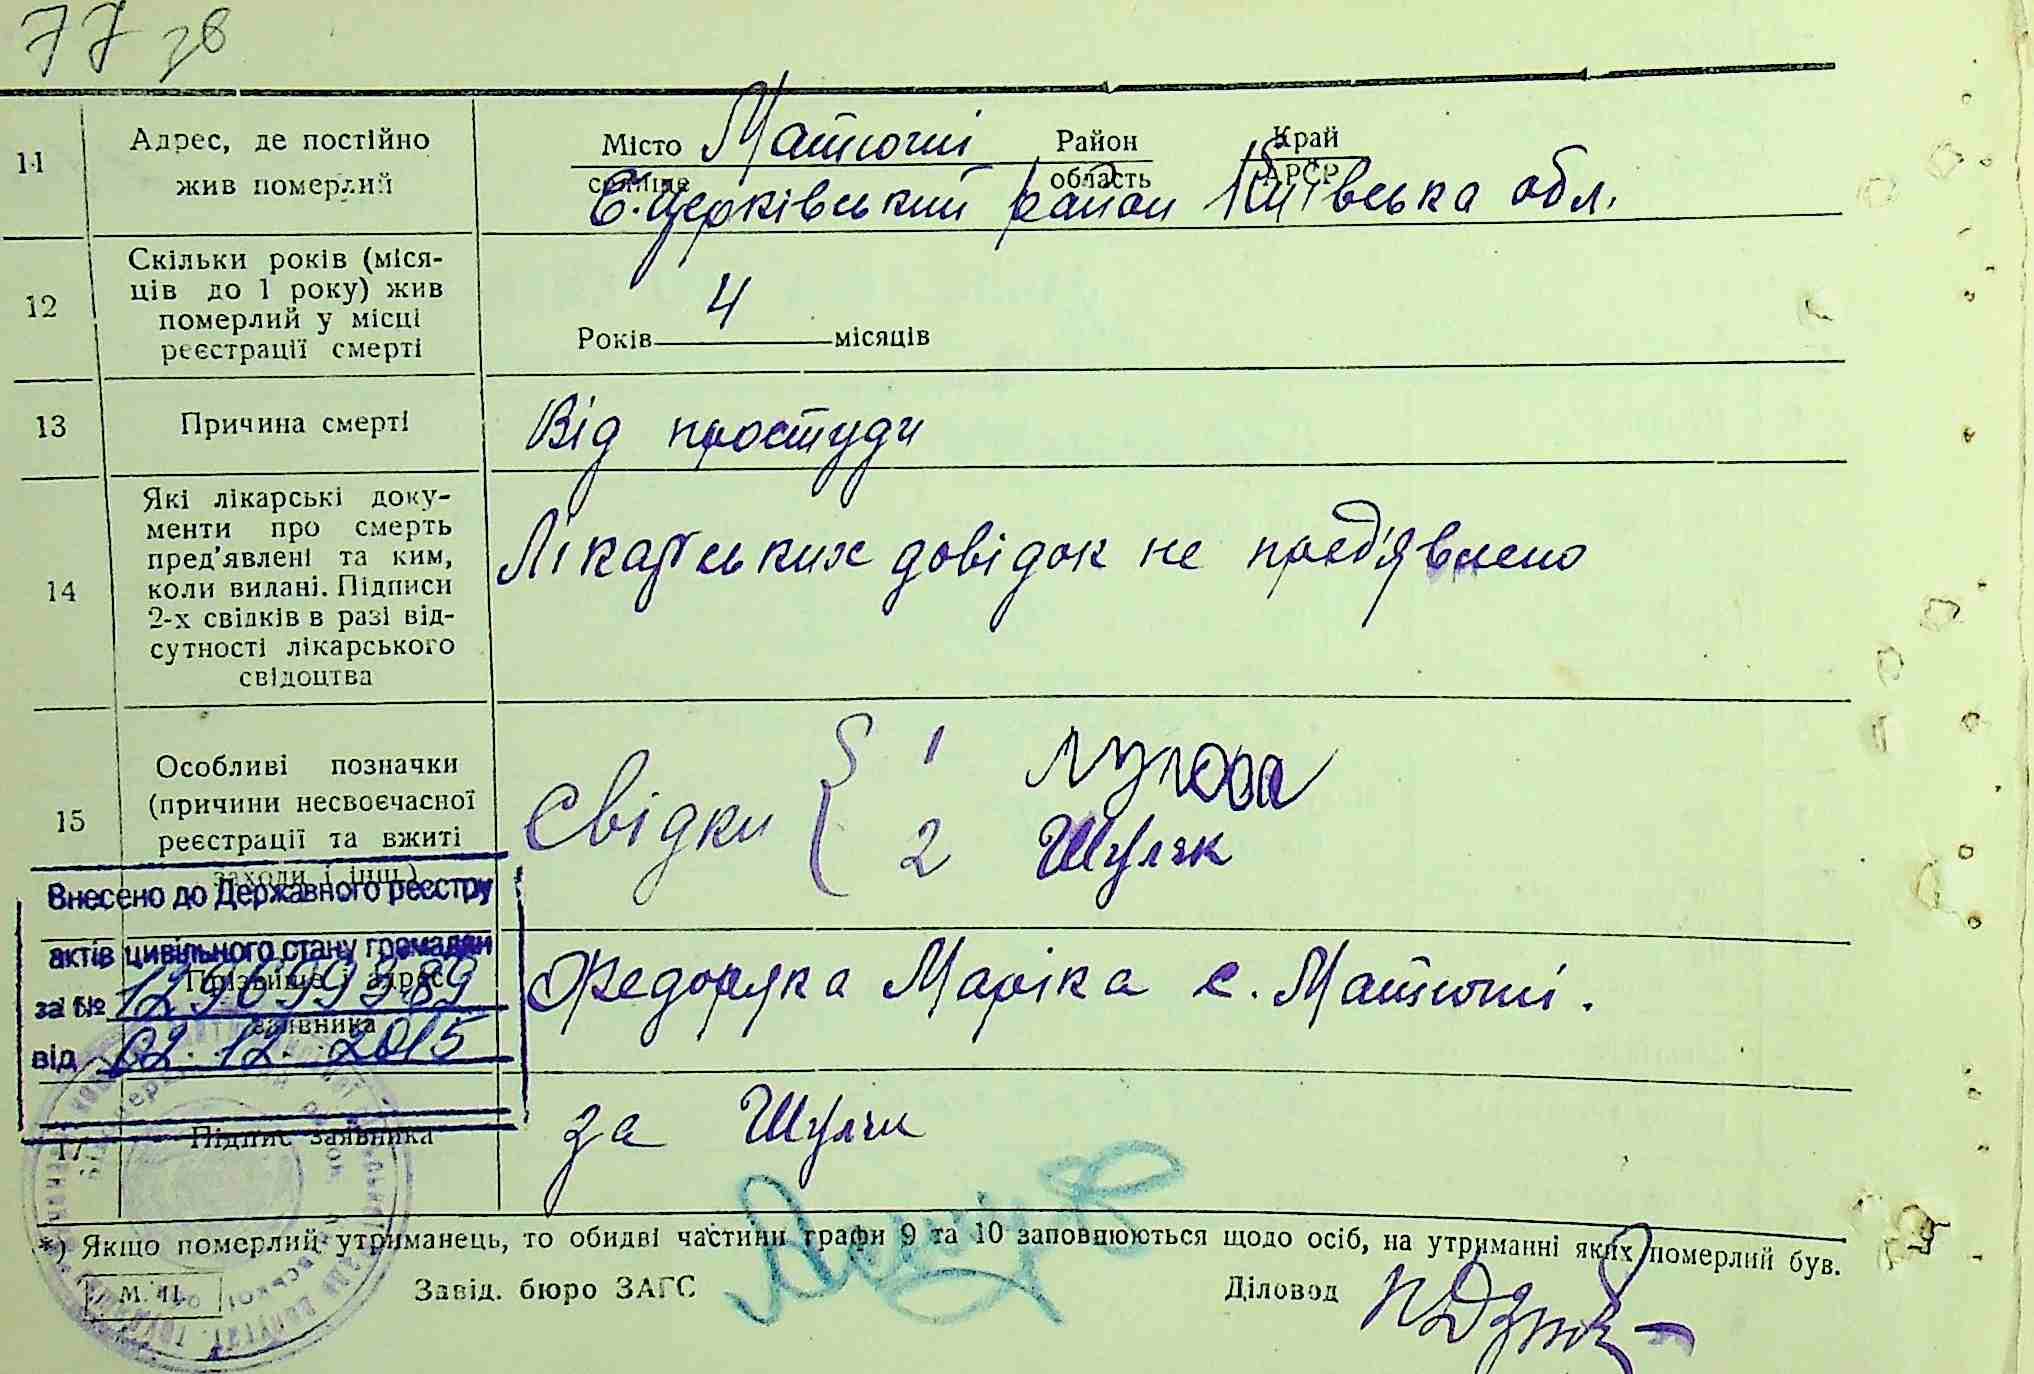 77 зв
11
Адрес, де постійно
жив померлий
Місто Матюші Район Край
селище область АРСР
Б.Церківський район Київська обл.
12
Скільки років (міся-
ців до 1 року) жив
померлий у місці
реєстрації смерті
4
Років місяців
13
Причина смерті
Від простуди
14
Які лікарські доку-
менти про смерть
пред'явлені та ким,
коли видані. Підписи
2-х свідків в разі від-
сутності лікарського
свідоцтва
Лікарських довідок не пред'явлено
15
Особливі позначки
(причини несвоєчасної
реєстрації та вжиті
заходи і інш.)
Свідки { 1
2 Шуляк
Внесено до Державного реєстру
актів цивільного стану громадян
за № 129699389
від 02.12.2015
Прізвище і адрес
заявника
Федоряка Маріка с. Матюші.
17
Підпис заявника
за Шуляк
*) Якщо померлий утриманець, то обидві частини графи 9 та 10 заповнюються щодо осіб, на утриманні яких померлий був.
М. П.
Завід. бюро ЗАГС
Діловод